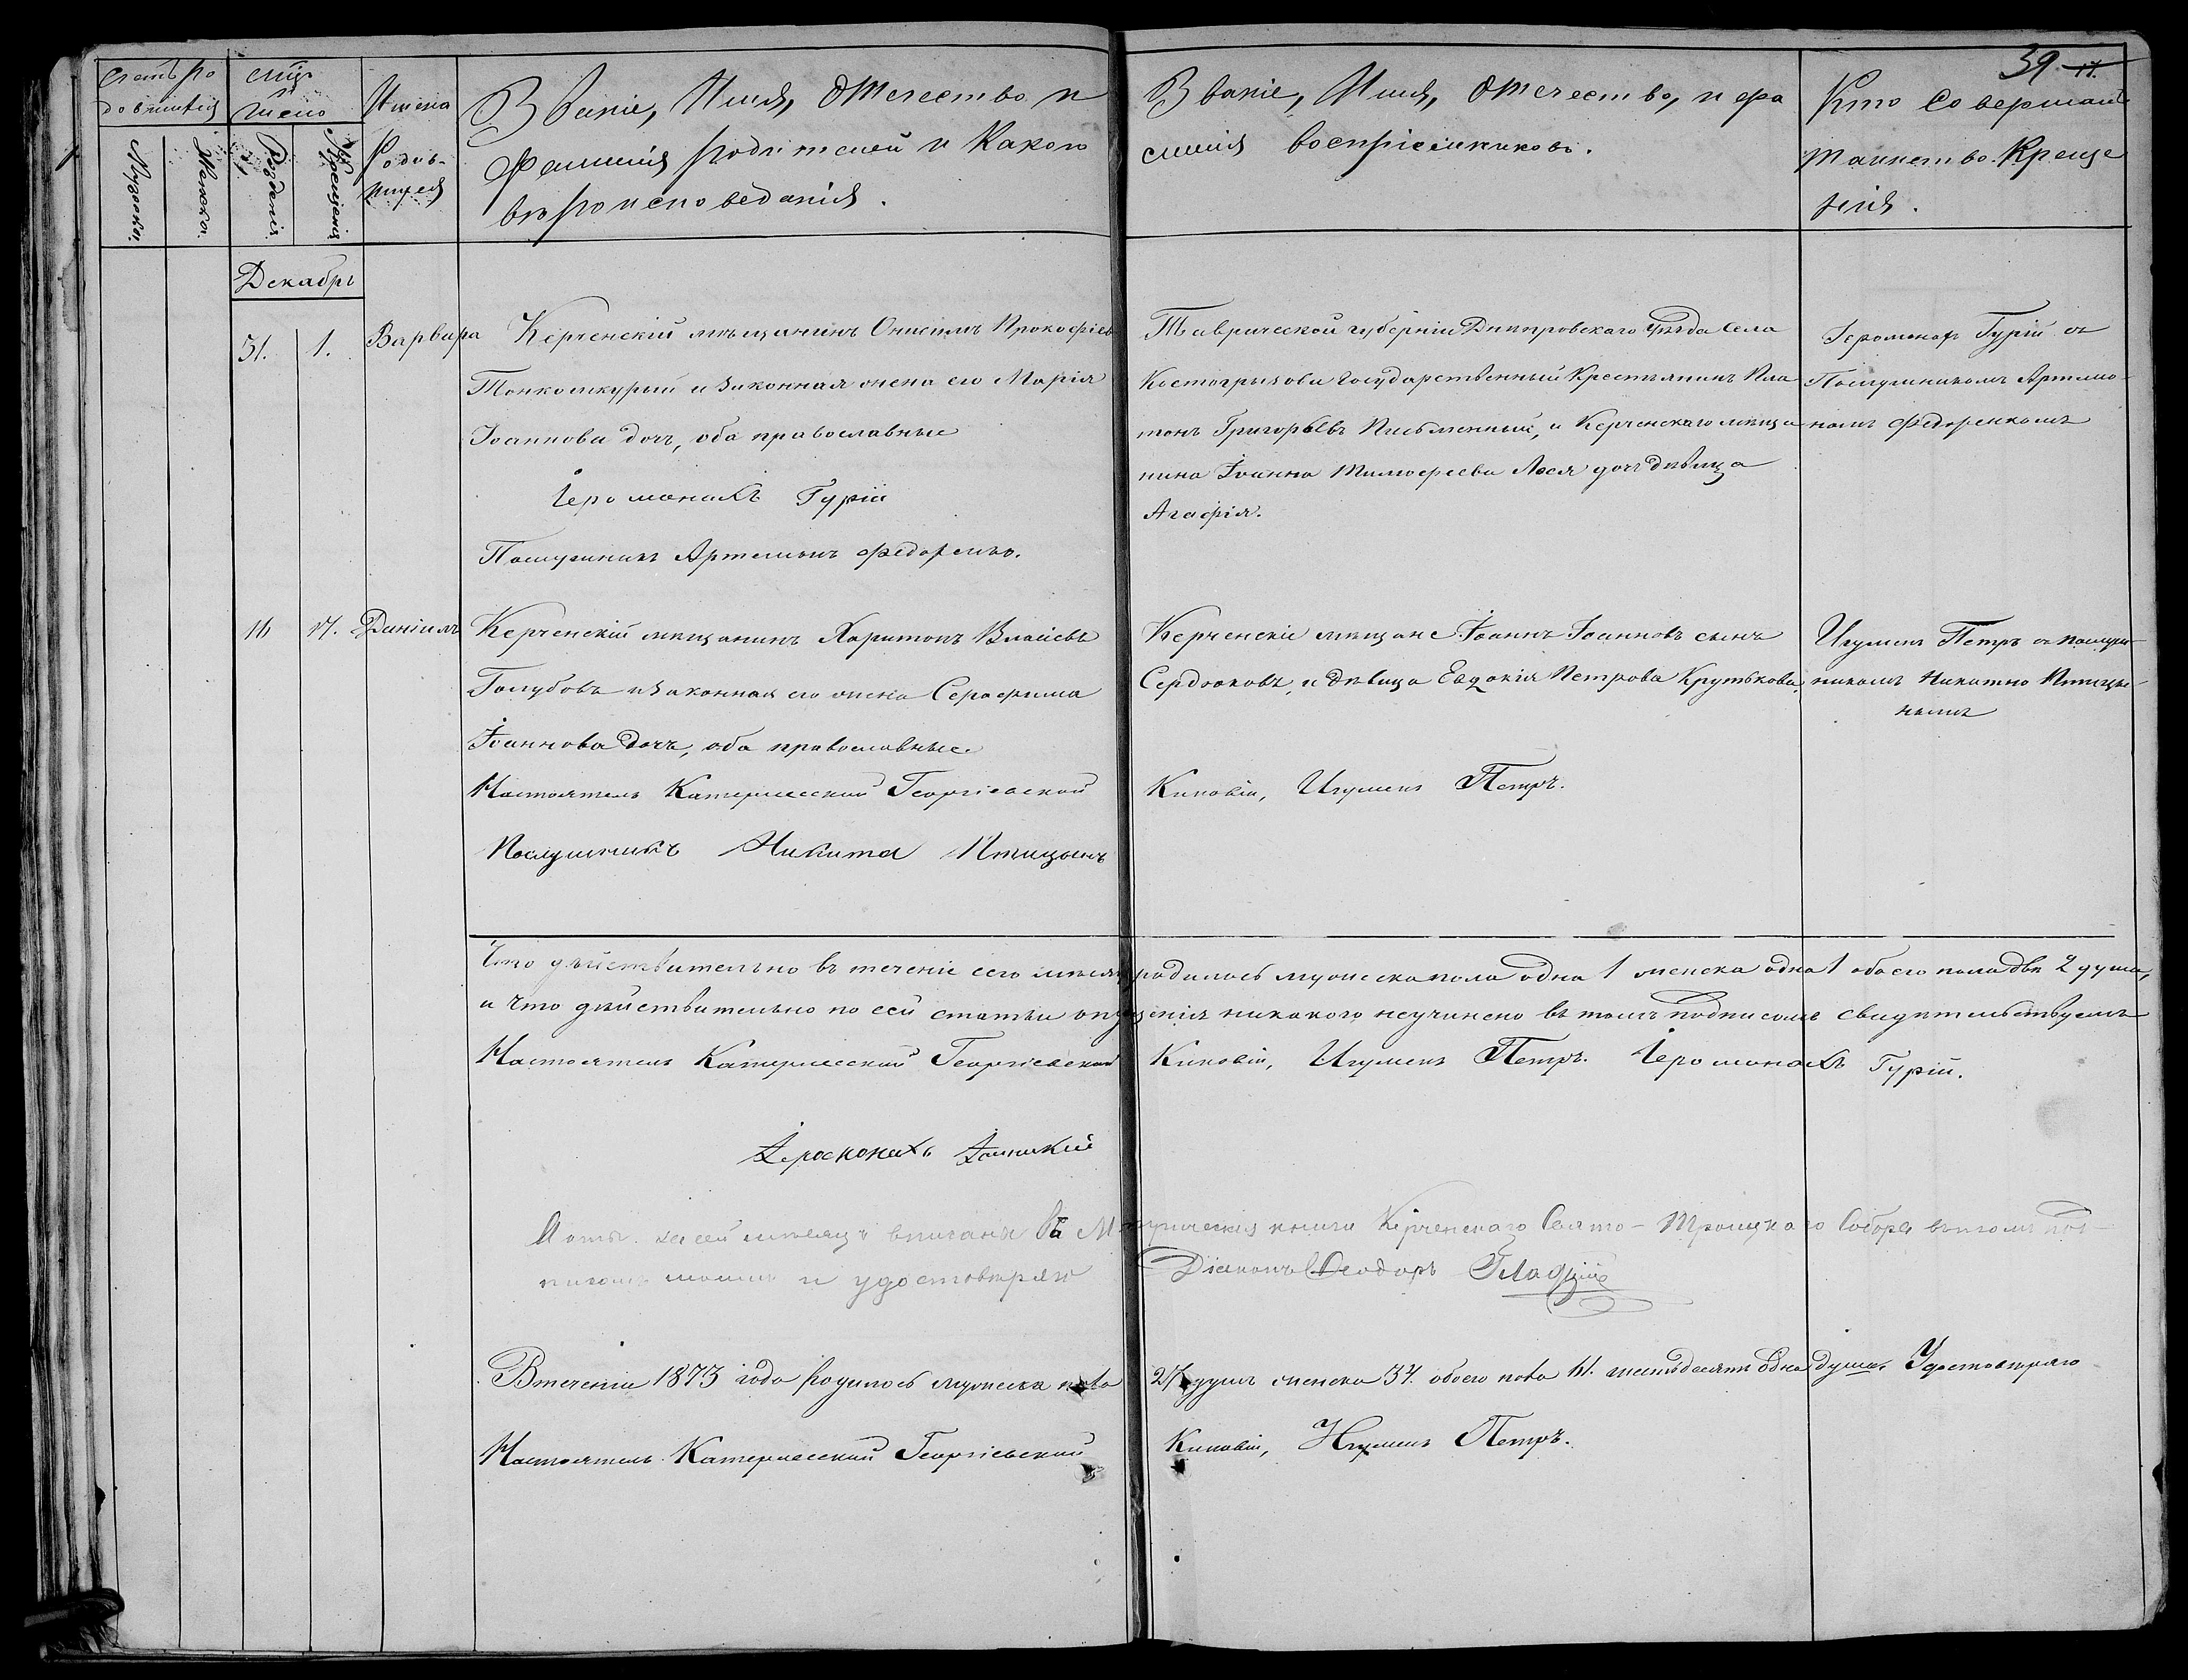 39 17.
Счетъ ро
дившихся
Мужеска.
Женска.
Мѣсяцъ и число
Рожденія.
Крещенія
Имена
Родив-
шихся
Званіе, Имя, Отчество и
Фамилія родителей и какого
вѣроисповеданія.
Званіе, Имя, Отчество, и фа
милія воспріемниковъ.
Кто совершалъ
таинство Креще
нія.
Декабрь
31. 1. Варвара
Керченскій мѣщанинъ Онисимъ Прокофіевъ
Тонкошкурый и законная жена его Марія
Іоаннова дочь, оба православные
Іеромонахъ Гурій
Послушникъ Артемонъ Федоренко.
Таврической губерніи Днипровскаго уѣзда села
Костогрызова Государственный Крестьянинъ Пла
тонъ Григорьевъ Письменный, и Керченскаго мѣща
нина Іоанна Тимофеева дочь дѣвица
Агафія.
Іеромонахъ Гурій съ
Послушникомъ Артемо-
номъ Федоренкомъ
16 17. Даніилъ
Керченскій мѣщанинъ Харитонъ Власіевъ
Голубовъ и законная его жена Серафима
Іоаннова дочь, оба православные.
Настоятель Катерлесской Георгіевской
Послушникъ Никита Птицынъ
Керченскіе мѣщане Іоаннъ Іоанновъ сынъ
Сердюковъ, и дѣвица Евдокія Петрова Крутькова,
Киновіи, Игуменъ Петръ.
Игуменъ Петръ съ послуш-
никомъ Никитою Птицы-
нымъ
Что дѣйствительно въ теченіе сего мѣсяца родилось мужеска пола одна 1 женска одна 1 обоего пола двѣ 2 души,
и что дѣйствительно по сей статьи опущенія никакого неучинено въ томъ подписомъ свидѣтельствуемъ
Настоятель Катерлесской Георгіевской Киновіи, Игуменъ Петръ. Іеромонахъ Гурій.
Іеромонахъ Іоаникій
Акты за сей мѣсяцъ вписаны въ Метрическія книги Керченскаго Свято-Троицкаго Собора въ томъ под-
писомъ моимъ и удостовѣряю Діаконъ Ѳеодоръ Гладкій
Втеченіи 1873 года родилось мужеска пола 27 душъ женска 34. обоего пола 61. шестьдесятъ одна душа. Удостовѣряю
Настоятель Катерлесской Георгіевской Киновіи, Игуменъ Петръ.